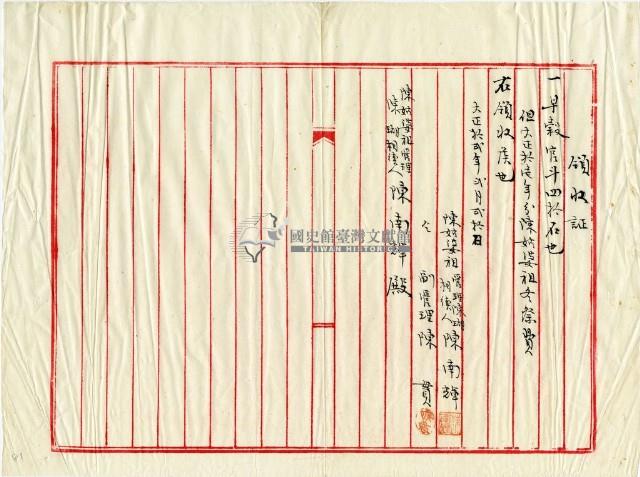 領收証
一 早穀官斗四拾石也
但大正拾壹年分陳姑婆祖冬祭費
右領收候也
大正拾貳年貳月貳拾日
陳姑婆祖 管理陳瑚相續人 陳南輝
仝 副管理 陳 貫
陳姑婆祖管理
陳瑚相續人 陳南輝殿
國史館臺灣文獻館
TAIWAN HISTORICA